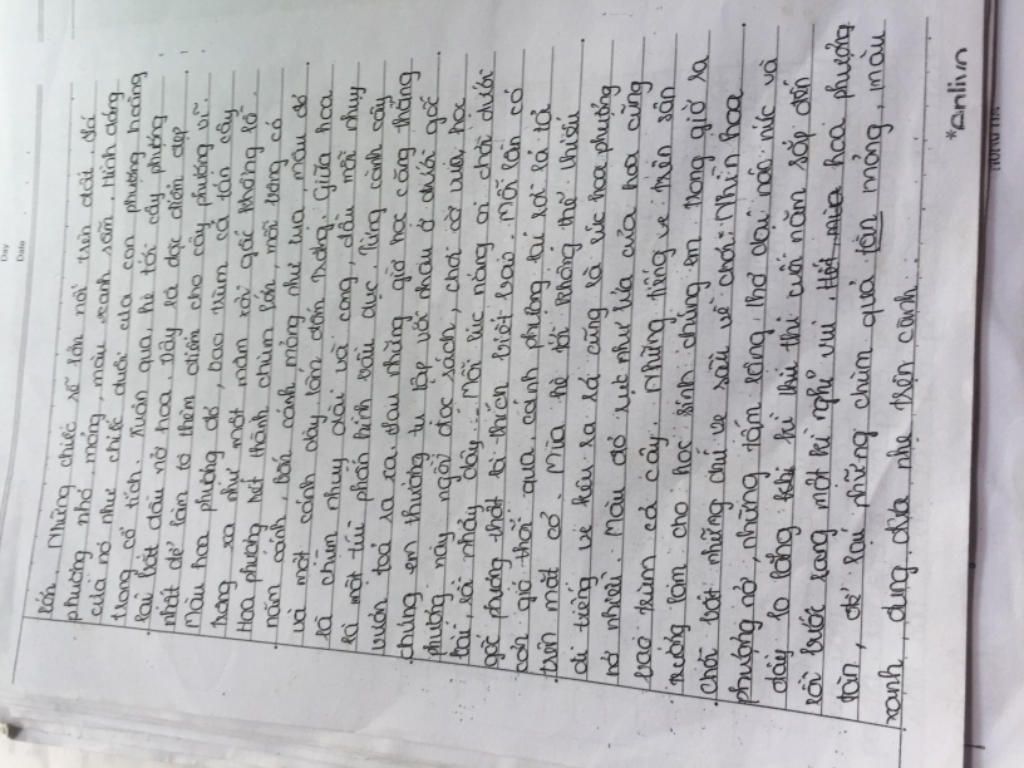 Day
Date
lớn. Những chiếc sẽ lớn nói trên dài đó
phương nhỏ, mỏng, màu xanh sẫm. Hình dáng
của nó như chiếc đuôi của con phượng hoàng
trong cổ tích. Xuân qua, hè tới cây phượng
lại bắt đầu nở hoa. Đây là đặc điểm đẹp
nhất để làm tô thêm điểm cho cây phượng vĩ.
Màu hoa phượng đỏ, bao trùm cả tán cây
trông xa như một mâm xôi gấc khổng lồ.
Hoa phượng kết thành chùm lớn, mỗi bông có
năm cánh, bốn cánh mỏng như lụa, màu đỏ
và một cánh dày lốm đốm trắng. Giữa hoa
là chùm nhụy dài và cong, đầu mỗi nhụy
là một túi phấn hình bầu dục. Từng cành cây
vươn toả ra xa. Sau những giờ học căng thẳng
chúng em thường tụ tập với nhau ở dưới gốc
phượng này ngồi đọc sách, chơi cờ vua, học
bài, rồi nhảy dây... Mỗi lúc nắng oi chơi dưới
gốc phượng thật là thích biết bao. Mỗi lần có
cơn gió thổi qua, cánh phượng lại rơi lả tả
trên mặt cỏ. Mùa hè tới không thể thiếu
đi tiếng ve kêu ra rả cũng là lúc hoa phượng
nở nhiều. Màu đỏ rực như lửa của hoa cũng
bao trùm cả cây. Những tiếng ve trên sân
trường làm cho học sinh chúng em trong giờ ra
chơi bắt những chú ve sầu về chơi. Nhìn hoa
phượng nở, những tấm lòng thơ dại náo nức và
đầy lo lắng khi kì thi cuối năm sắp đến
rồi bước sang một kì nghỉ vui. Hết mùa hoa phượng
tàn, để lại những chùm quả tòn mỏng, màu
xanh, đung đưa nhẹ trên cành.
*Anlivn